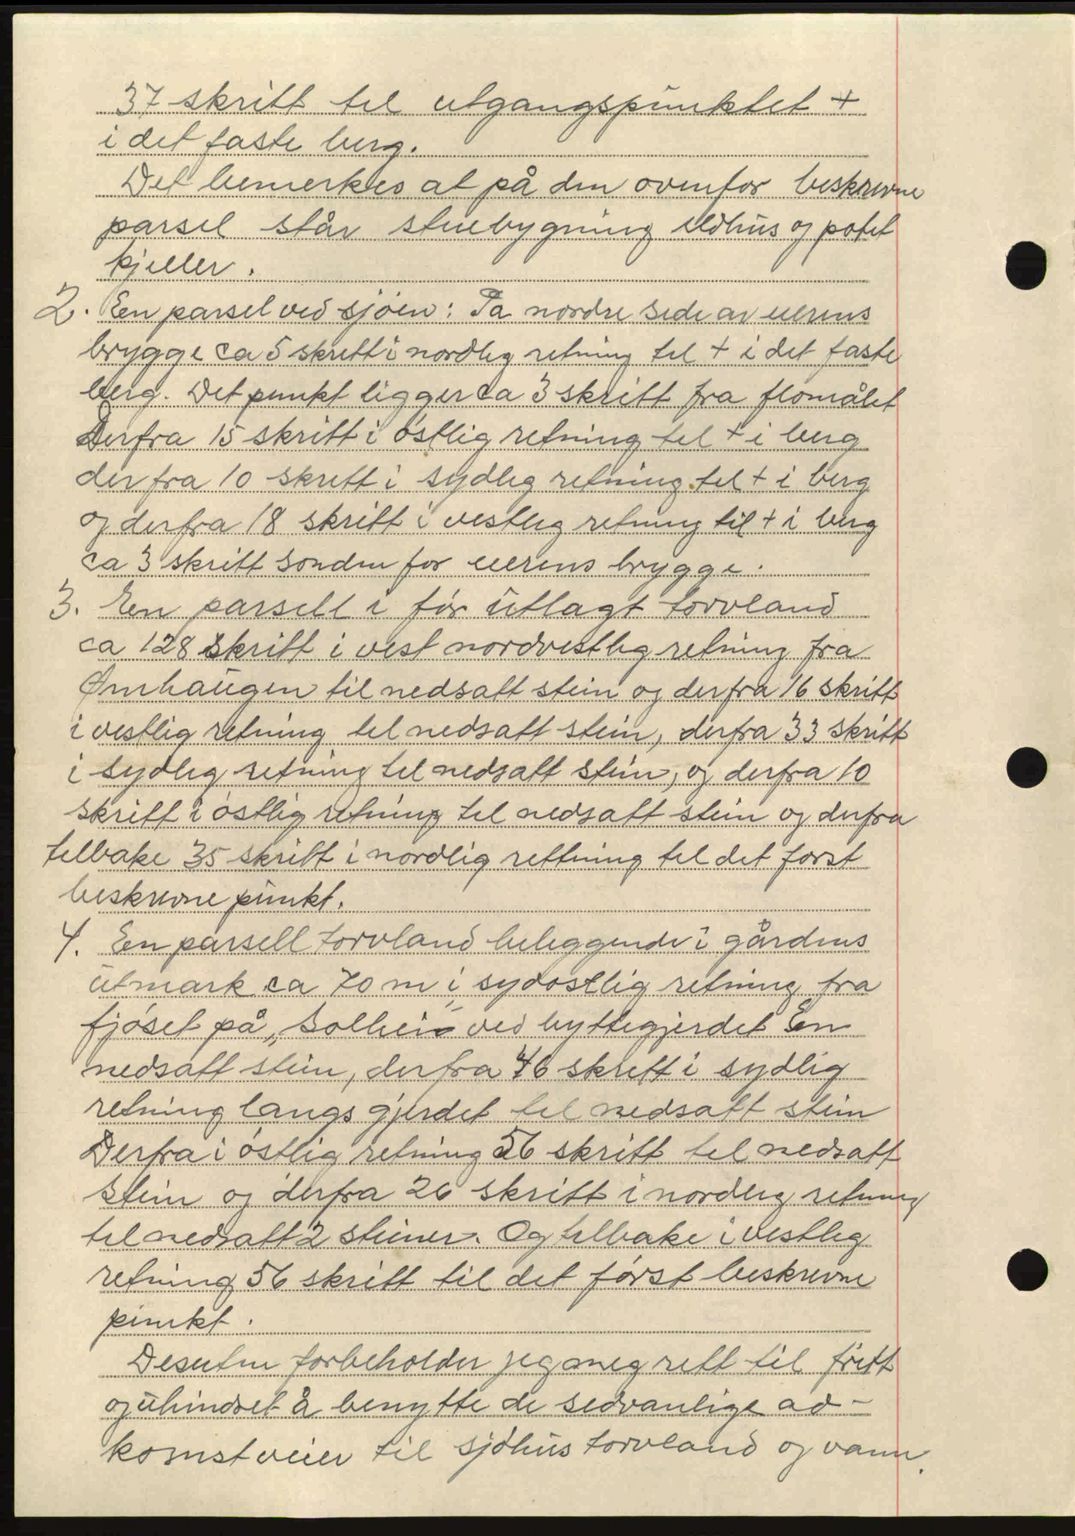 37 skritt til utgangspunktet +
i det faste berg.
Det bemerkes at på den ovenfor beskrevne
parsel står stuebygning eldhus og potet
kjeller.
2. En parsel ved sjøen: Pa nordre side av eierens
brygge ca 5 skritt i nordlig retning til + i det faste
berg. Det punkt ligger ca 3 skritt fra flomålet
Derfra 15 skritt i østlig retning til + i berg
derfra 10 skritt i sydlig retning til + i berg
og derfra 18 skritt i vestlig retning til + i berg
ca 3 skritt sonden for eierens brygge.
3. En parsell i før utlagt torvland
ca 128 skritt i vest nordvestlig retning fra
Ørnhaugen til nedsatt stein og derfra 16 skritt
i vestlig retning til nedsatt stein, derfra 33 skritt
i sydlig retning til nedsatt stein, og derfra 10
skritt i østlig retning til nedsatt stein og derfra
tilbake 35 skritt i nordlig rettning til det først
beskrevne punkt.
4. En parsell torvland beliggende i gårdens
utmark ca 70 m i sydostlig retning fra
fjøset på „Solheim" ved byttegjerdet En
nedsatt stein, derfra 46 skritt i sydlig
retning langs gjerdet til nedsatt stein
Derfra i østlig retning 56 skritt til nedsatt
stein og derfra 26 skritt i nordlig retning
til nedsatt 2 steiner. Og tilbake i vestlig
retning 56 skritt til det først beskrevne
punkt.
Desuten forbeholder jeg meg rett til fritt
og uhindret å benytte de sedvanlige ad-
komstveier til sjøhus torvland og vann.